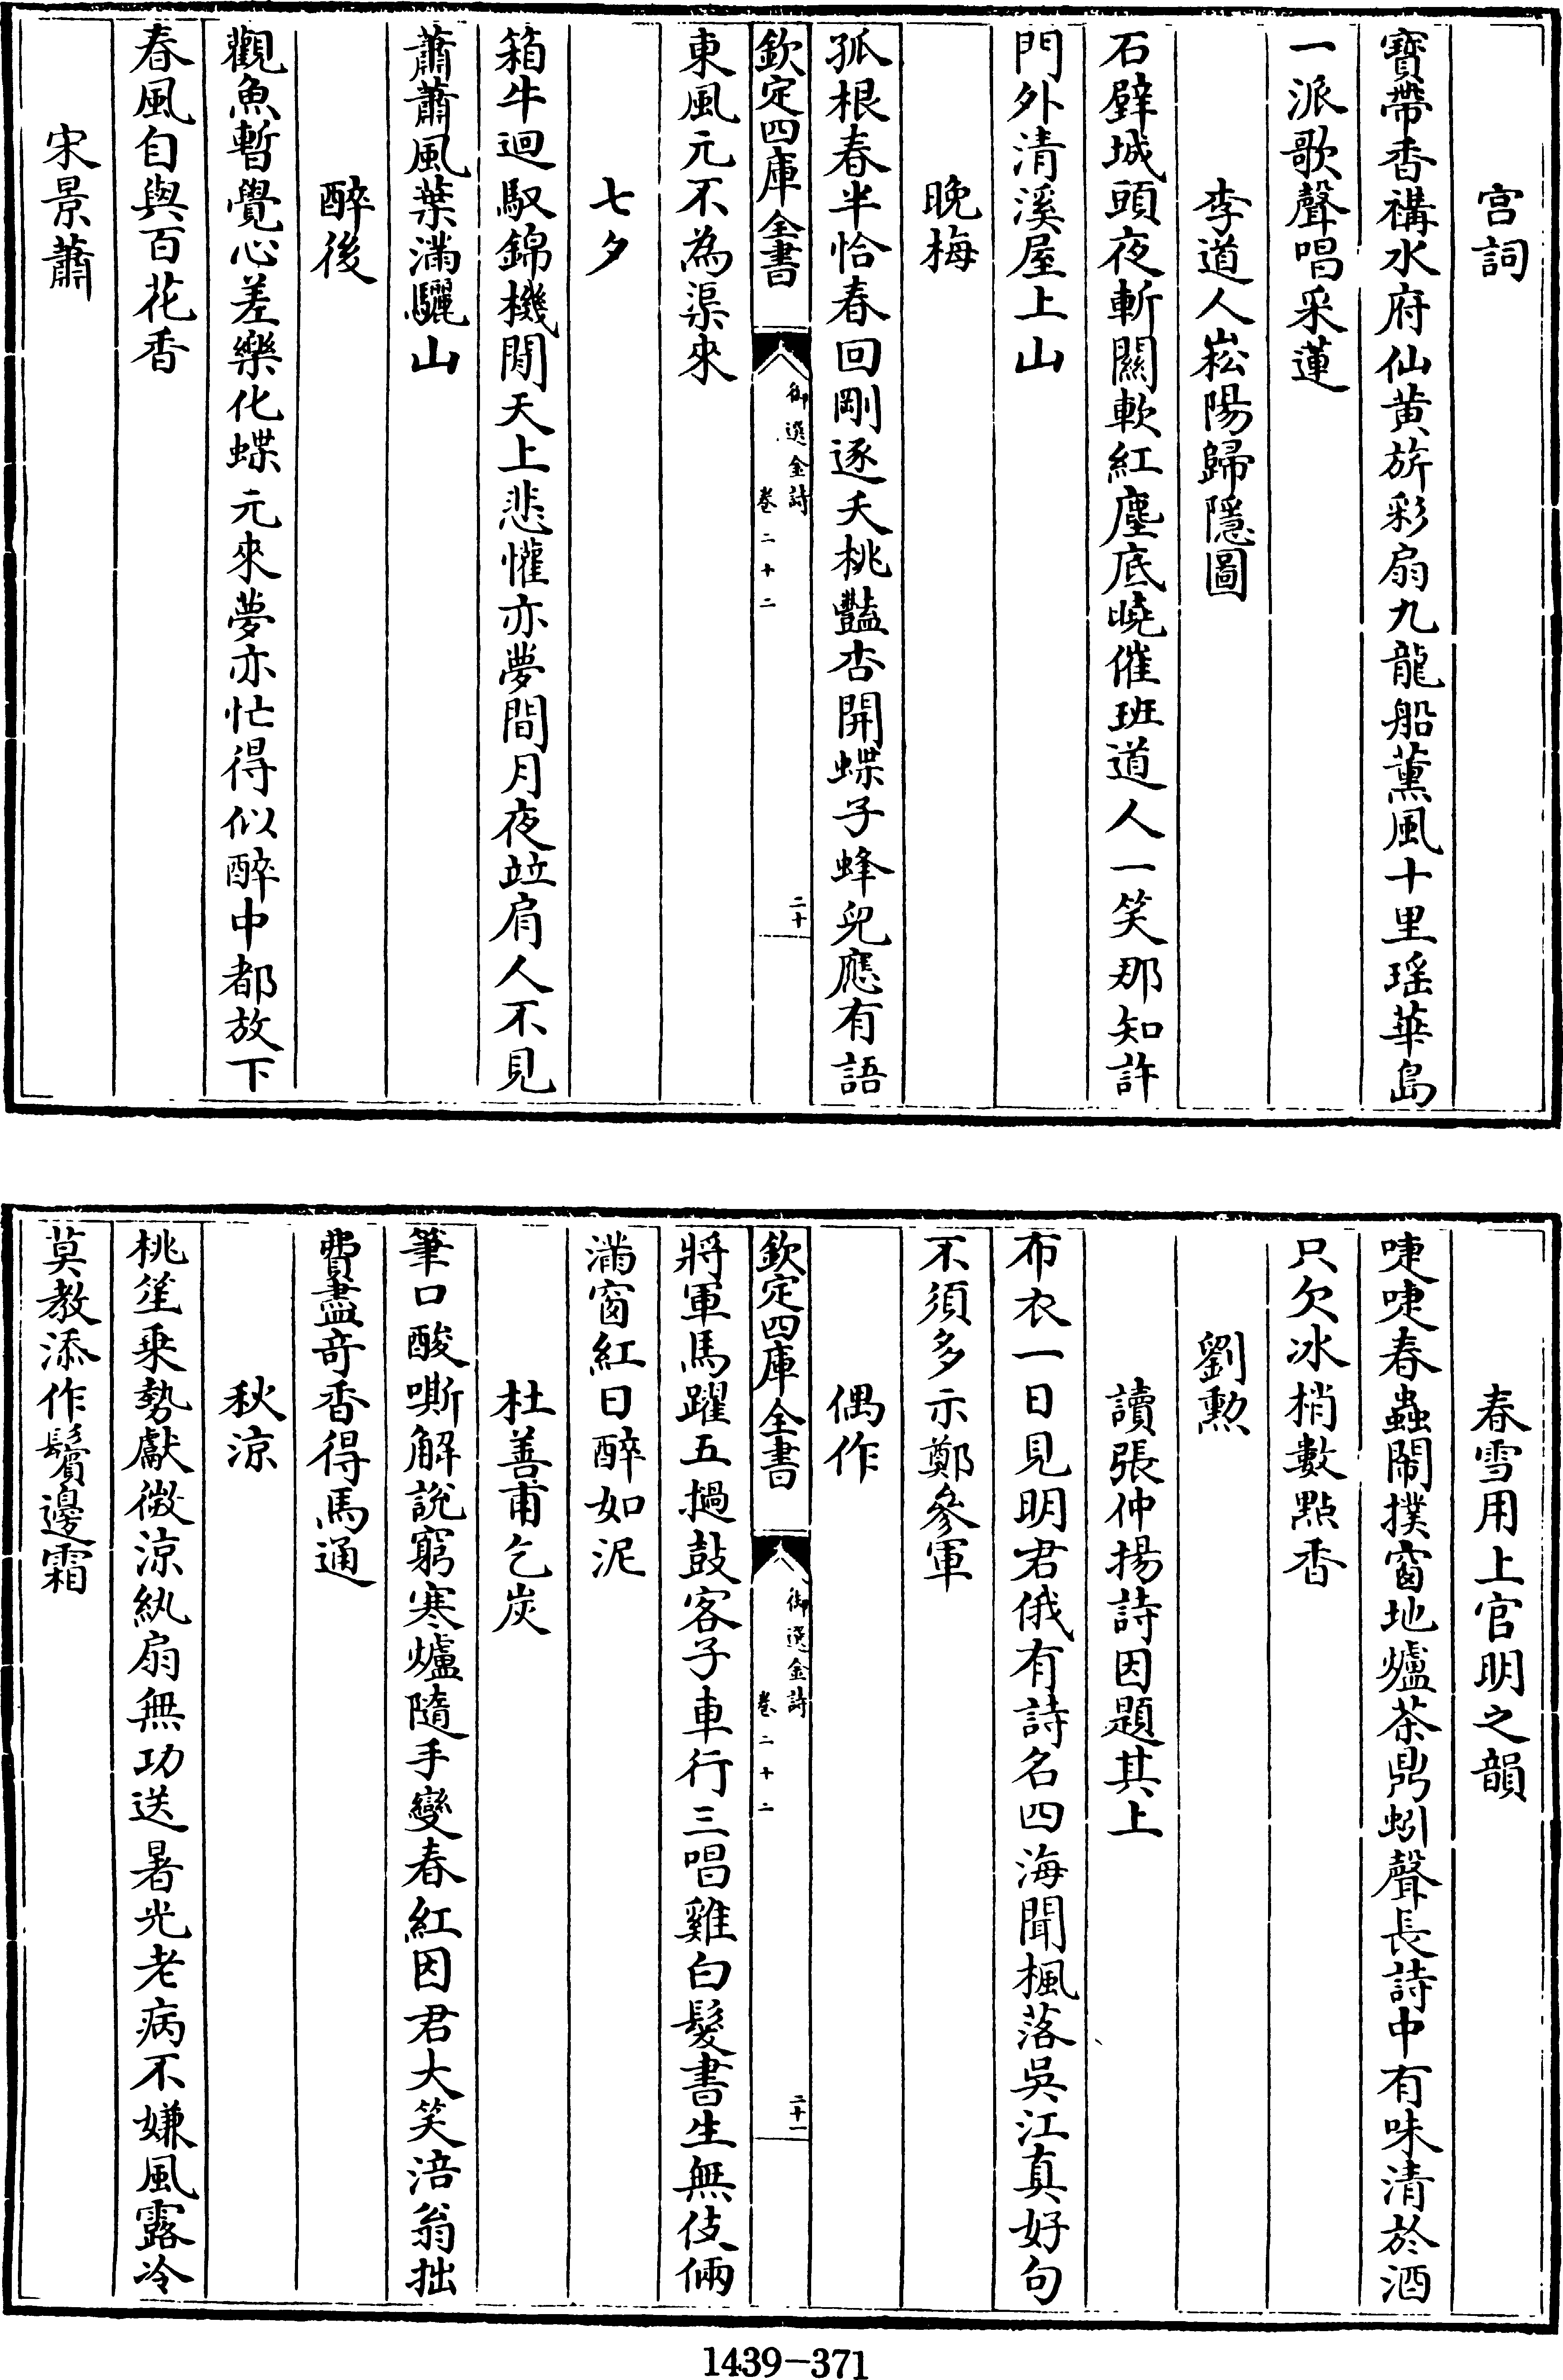 宫詞
寳帶香褠水府仙黄旂彩扇九龍船薰風十里瑶華島
一派歌聲唱采蓮
李道人崧陽歸隱圖
石壁城頭夜斬關軟紅塵底曉催班道人一笑那知許
門外清溪屋上山
晚梅
孤根春半恰春回剛逐夭桃豔杏開蝶子蜂兒應有語
欽定四庫全書
御選金詩
卷二十二
二十
東風元不為渠來
七夕
箱牛迴馭錦機閒天上悲懽亦夢間月夜竝肩人不見
蕭蕭風葉滿驪山
醉後
觀魚暫覺心差樂化蝶元來夢亦忙得似醉中都放下
春風自與百花香
宋景蕭
春雪用上官明之韻
唼唼春蟲鬧撲窗地爐茶鼎蚓聲長詩中有味清於酒
只欠冰梢數點香
劉勲
讀張仲揚詩因題其上
布衣一日見明君俄有詩名四海聞楓落吳江真好句
不須多示鄭參軍
偶作
欽定四庫全書
御選金詩
卷二十二
二十一
將軍馬躍五撾鼓客子車行三唱雞白髮書生無伎倆
滿窗紅日醉如泥
杜善甫乞炭
筆口酸嘶解說窮寒爐隨手變春紅因君大笑涪翁拙
費盡奇香得馬通
秋涼
桃笙乗勢獻微涼紈扇無功送暑光老病不嫌風露冷
莫教添作鬢邊霜
1439-371